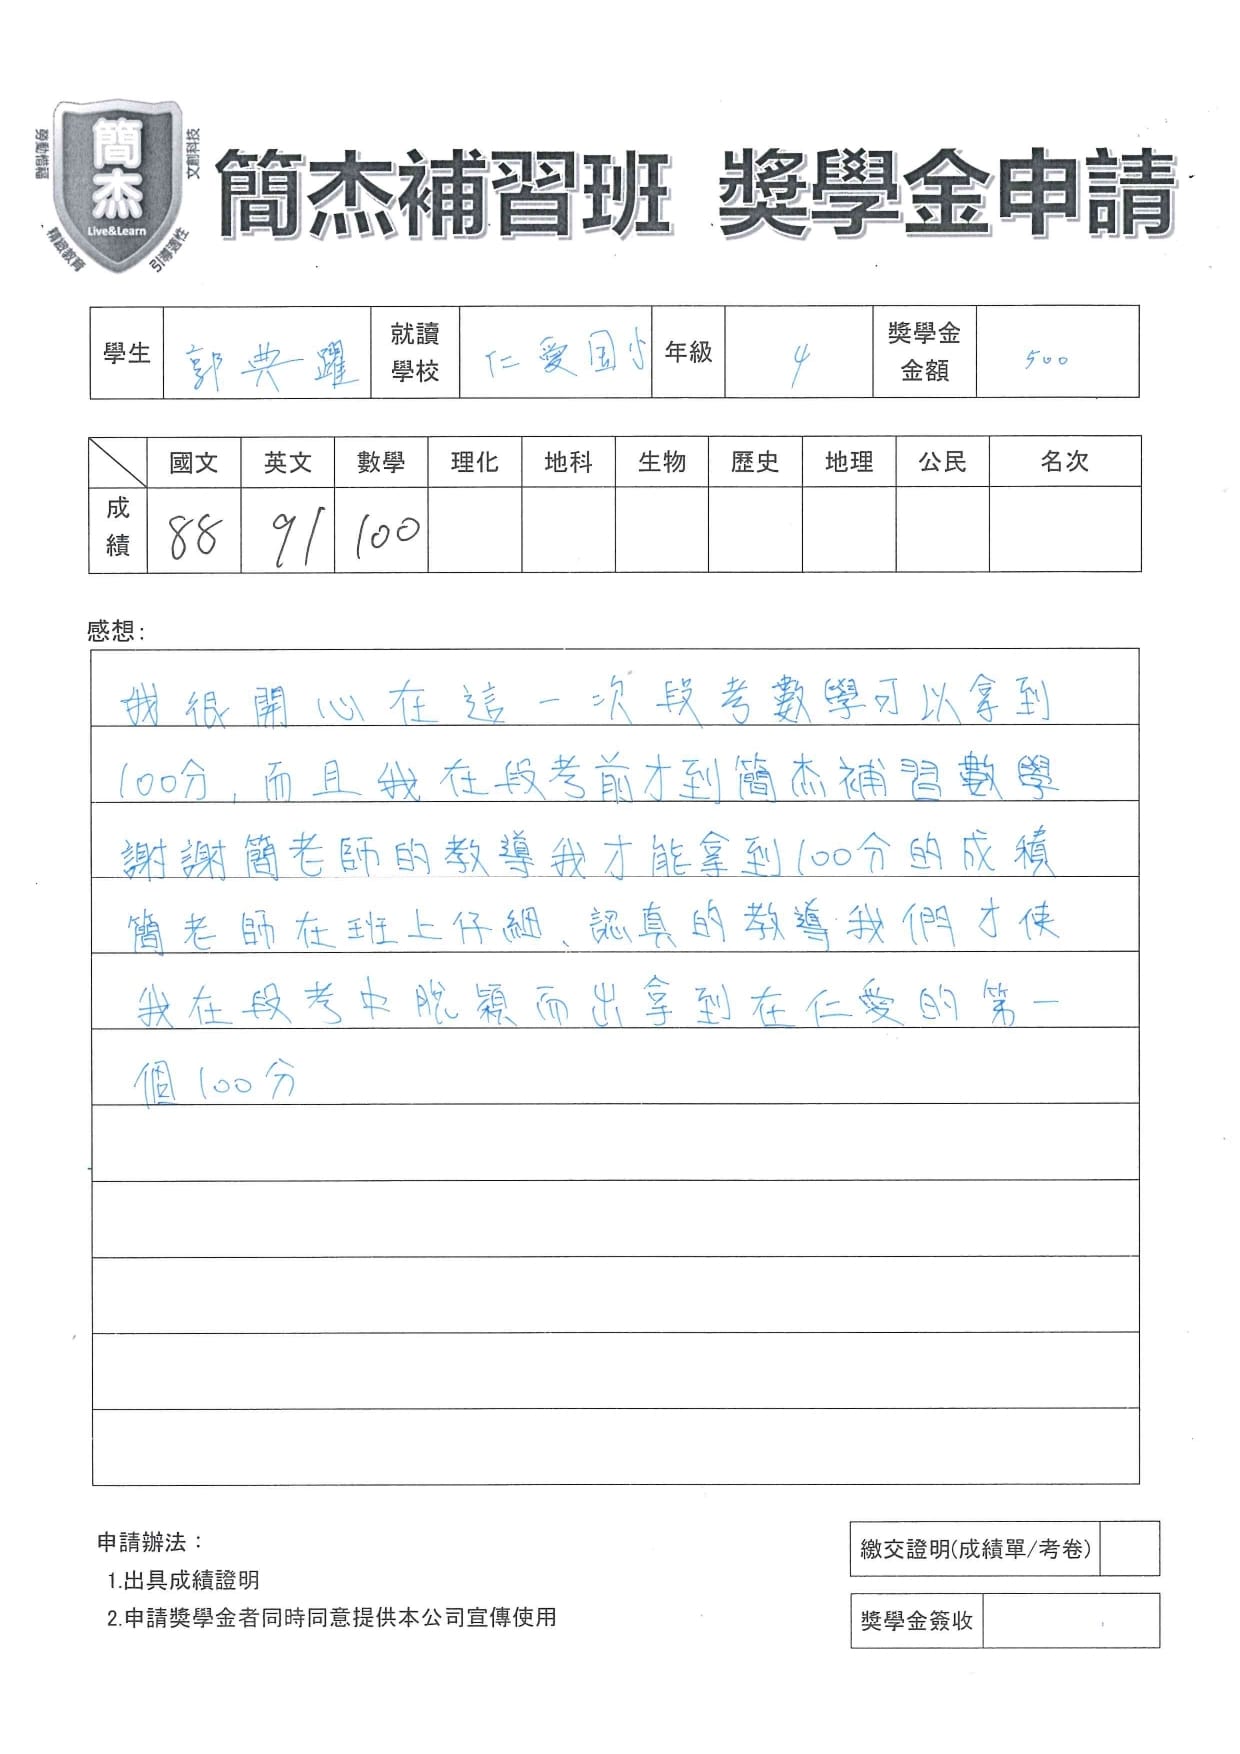 簡杰
Live&Learn
勞動惜福
文創科技
精緻教育
引導適性
簡杰補習班 獎學金申請
學生 郭典躍 就讀學校 仁愛国小 年級 4 獎學金金額 500
國文 英文 數學 理化 地科 生物 歷史 地理 公民 名次
成績 88 91 100
感想:
我很開心在這一次段考數學可以拿到
100分,而且我在段考前才到簡杰補習數學
謝謝簡老師的教導我才能拿到100分的成積
簡老師在班上仔細、認真的教導我們才使
我在段考中脫穎而出拿到在仁愛的第一
個100分
申請辦法：
1.出具成績證明
2.申請獎學金者同時同意提供本公司宣傳使用
繳交證明(成績單/考卷)
獎學金簽收